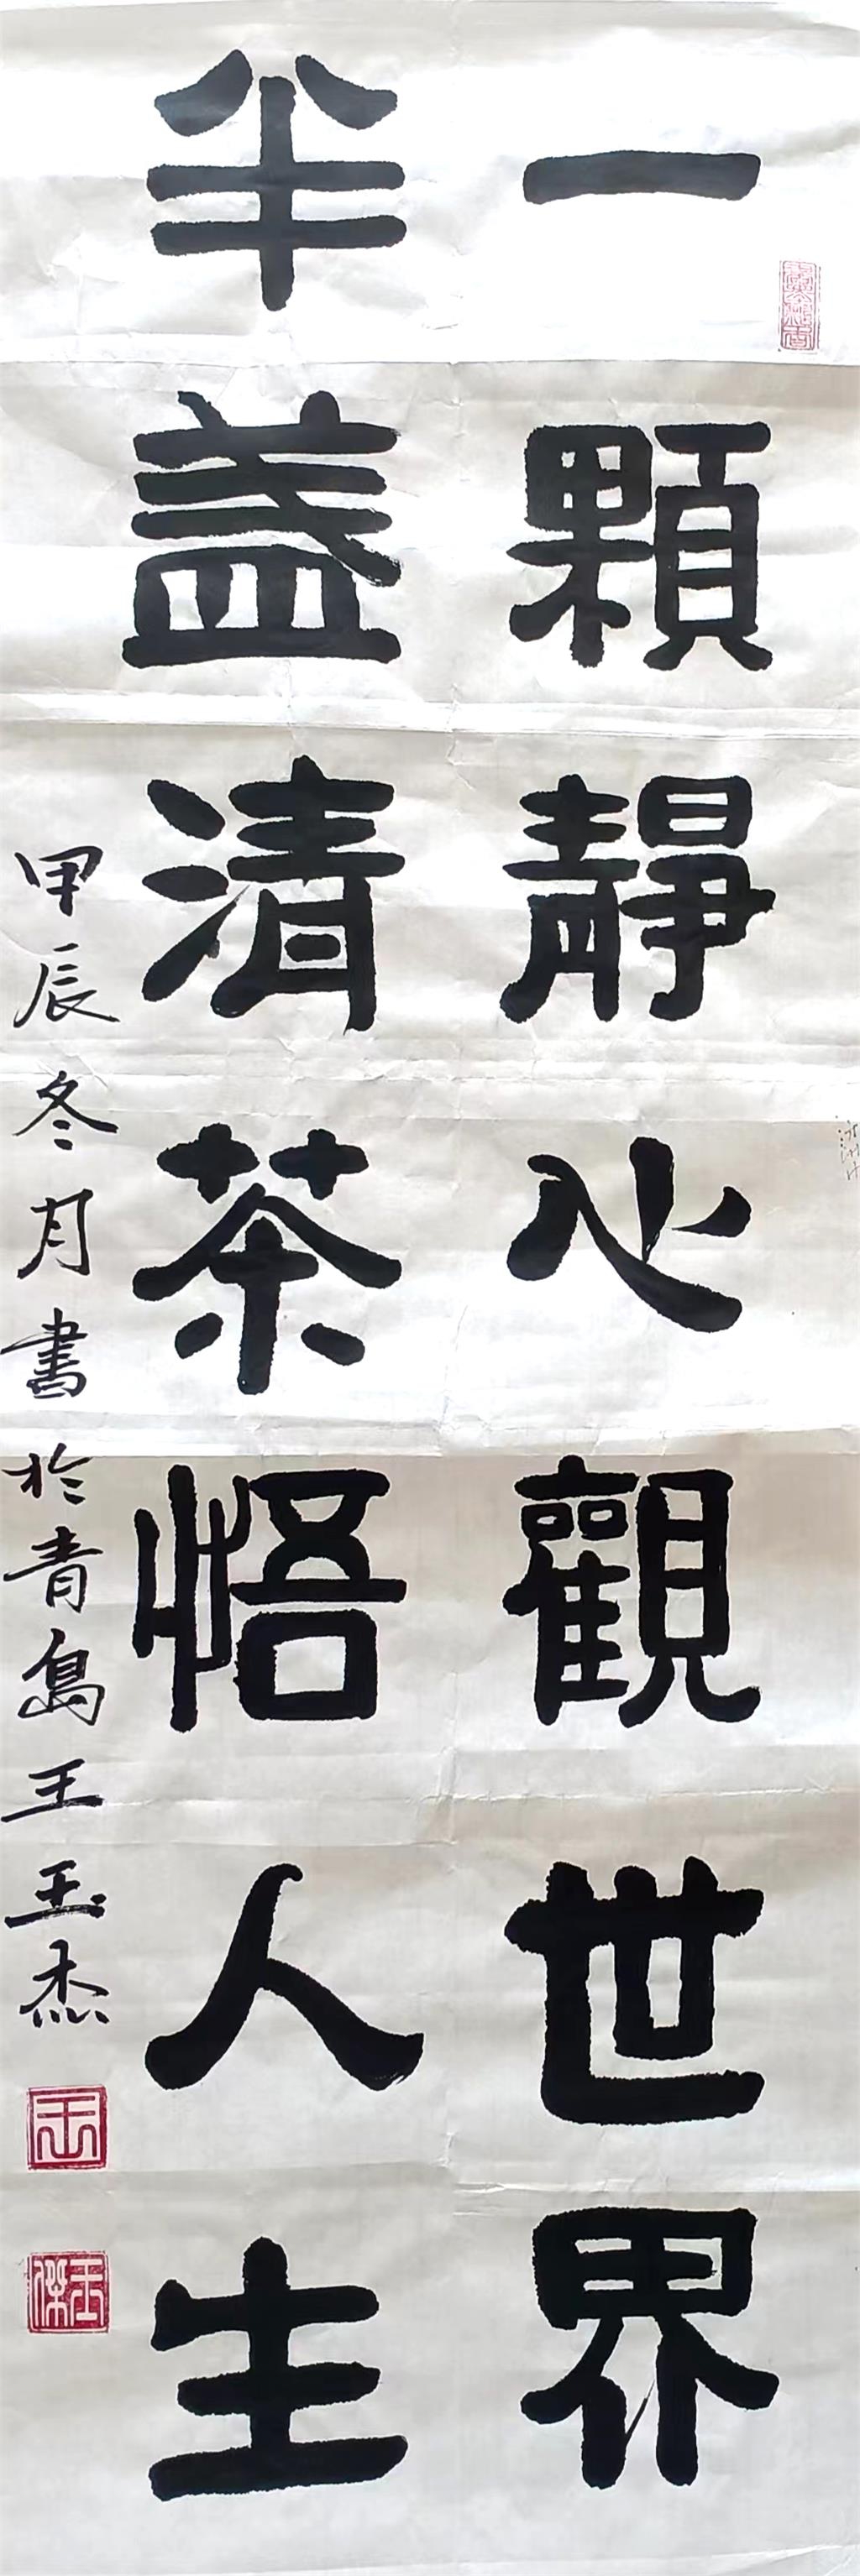 一顆靜心觀世界
半盞清茶悟人生
甲辰冬月書於青島王玉杰
王
玉傑